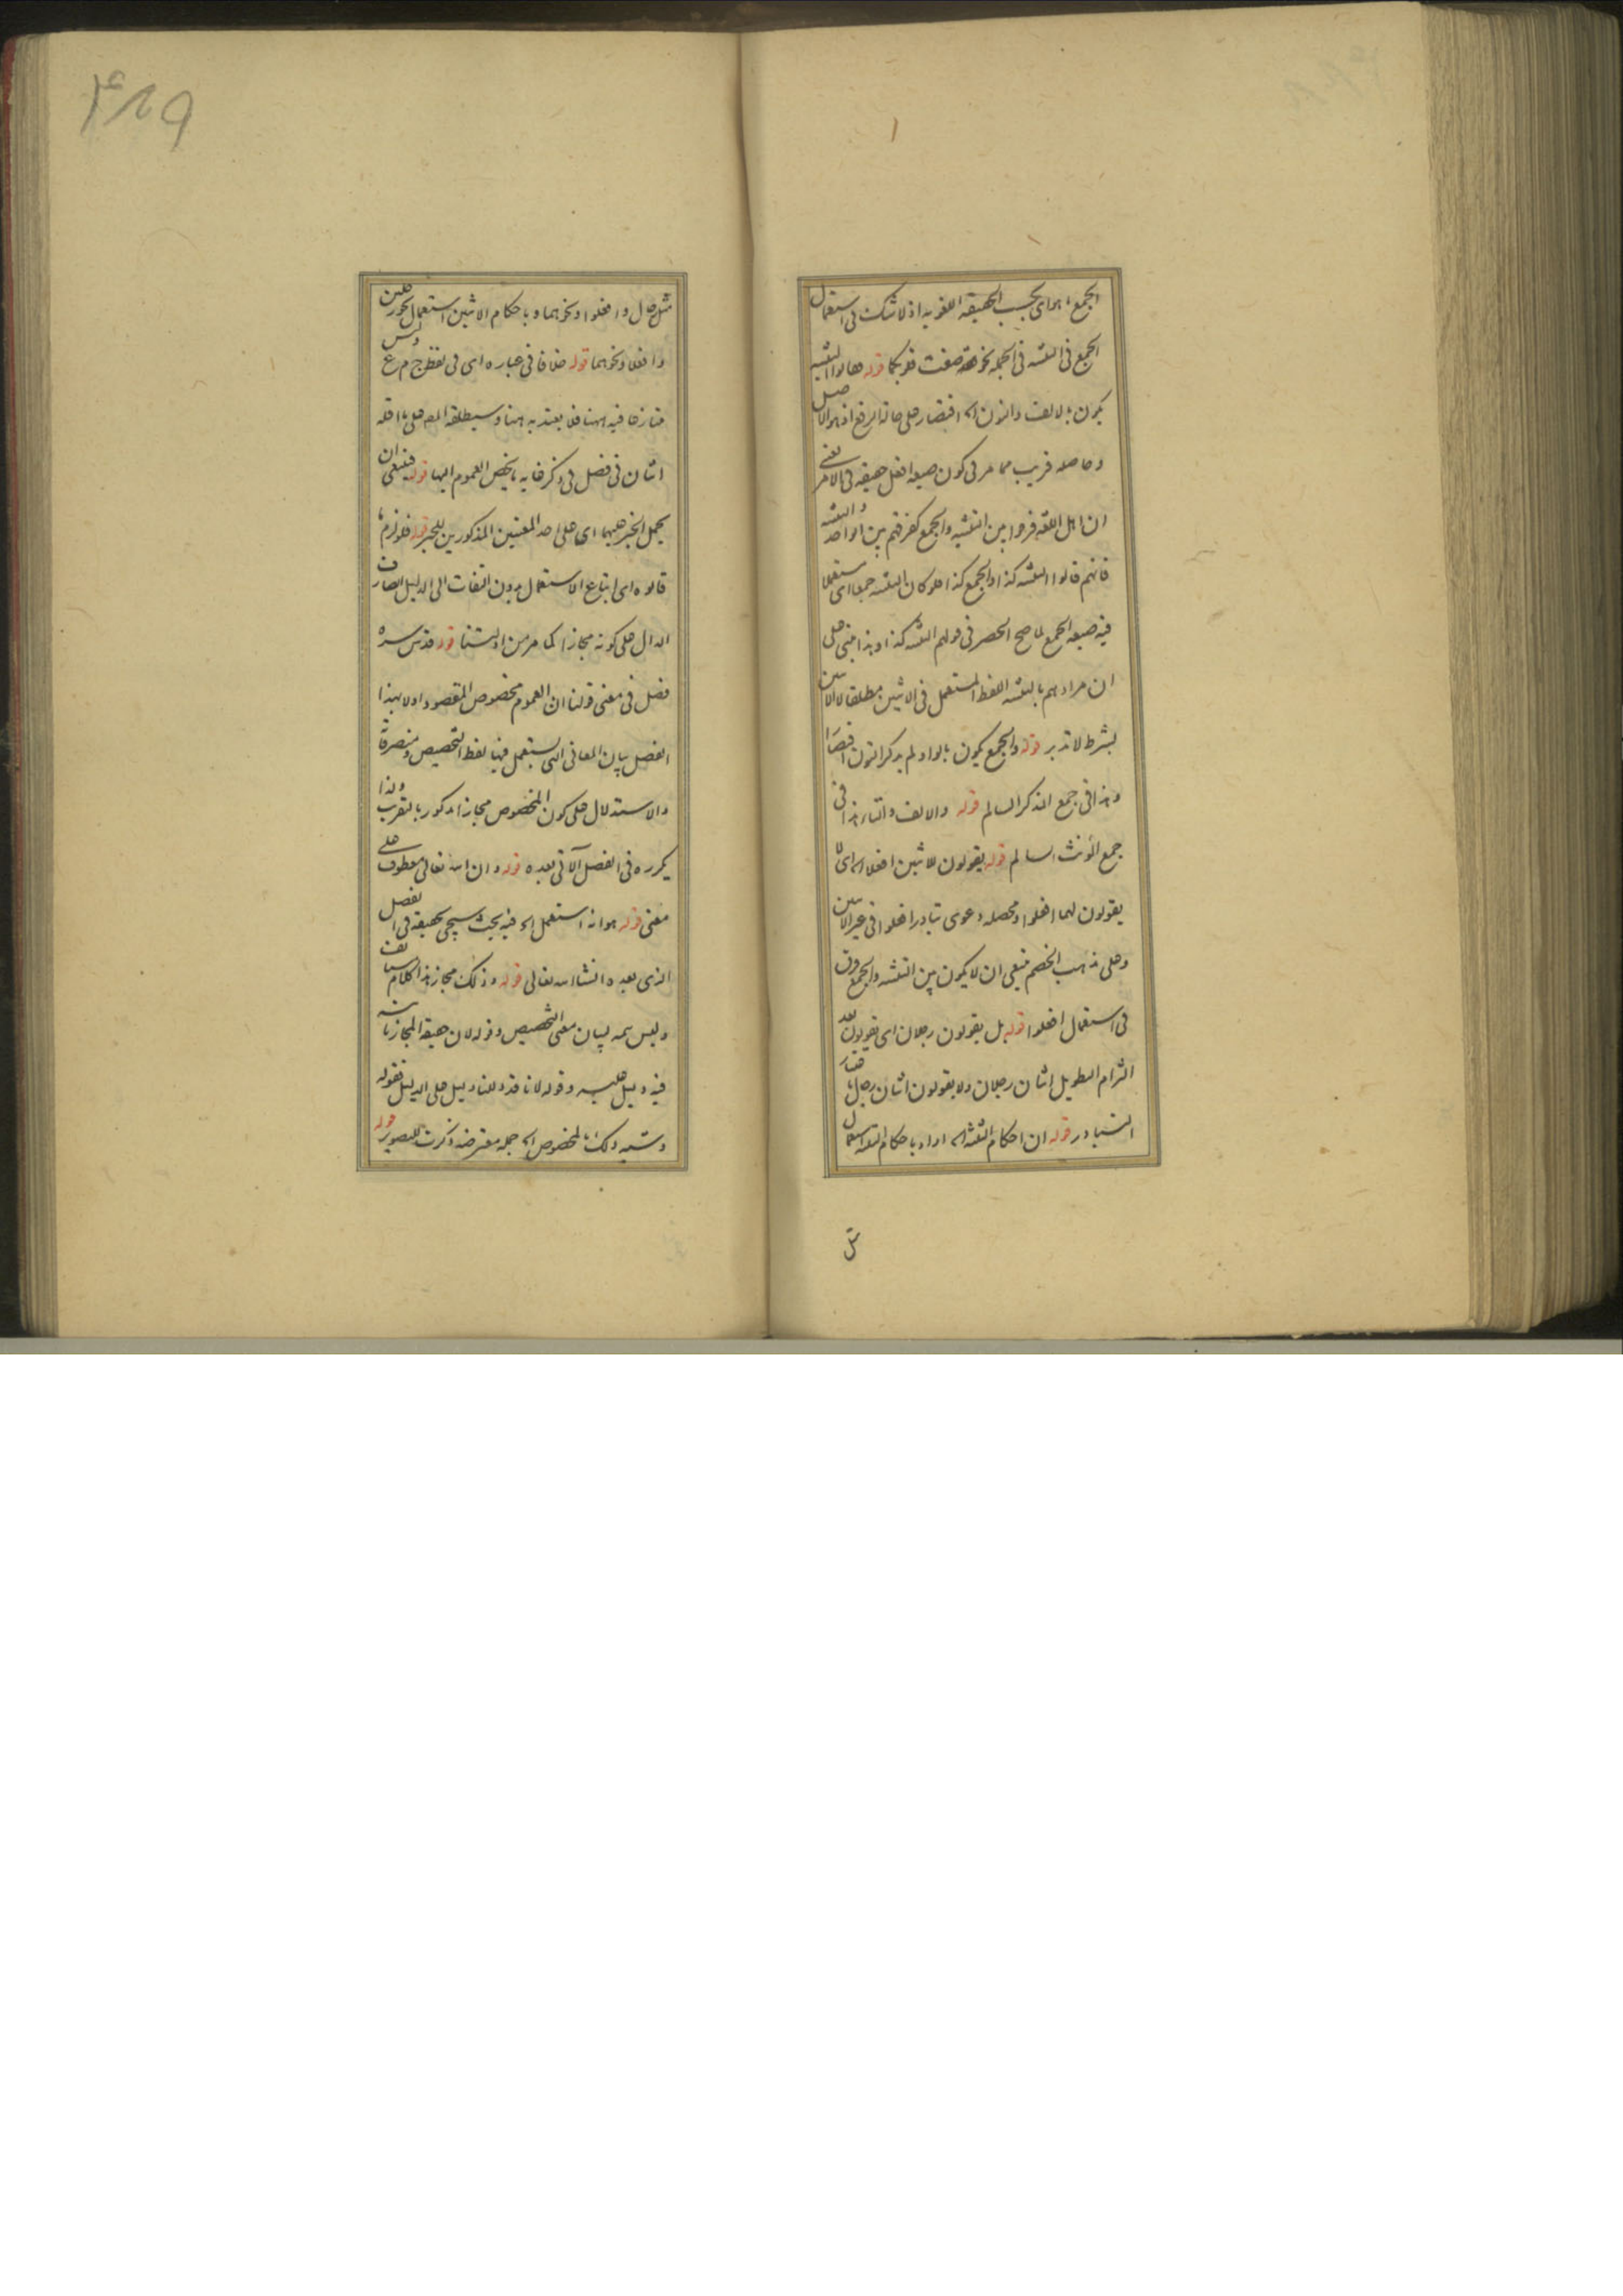 الجمع ما هو اى بحسب الحقيقة اللغوية اذ لا شك فى استعمال
الجمع فى التثنية فى الجملة نحو فقد صغت قلوبكما قوله فقالوا التثنية
يكون بالالف والنون اه اقتصار على حالة الرفع اذ هو الاصل
وحاصله قريب مما مر فى كون صيغة افعل حقيقة فى الامر يعنى
ان اهل اللغة فرقوا بين التثنية والجمع كفرقهم بين الواحد والتثنية
فانهم قالوا التثنية كذا والجمع كذا فلو كان التثنية جمعا اى مستعملا
فيه صيغة الجمع لما صح الحصر فى قولهم التثنية كذا وهذا مبنى على
ان مرادهم بالتثنية اللفظ المستعمل فى الاثنين مطلقا لا الاثنين
بشرط لا تدبر قوله والجمع يكون بالواو لم يذكر النون اقتصارا
وهذا فى جمع المذكر السالم قوله والالف والتاء هذا فى
جمع المؤنث السالم قوله يقولون للاثنين افعلا اه اى لا
يقولون لهما افعلوا ومحصله دعوى تبادر افعلوا فى غير الاثنين
وعلى مذهب الخصم ينبغى ان لا يكون بين التثنية والجمع فرق
فى استعمال افعلوا قوله بل يقولون رجلان اى يقولون بعد
التزام التطويل اثنان رجلان ولا يقولون اثنان رجال
المتبادر قوله ان احكام التثنية اه اراد باحكام التثنية استعمال
مثل
۴۸۹
مثل رجال وافعلوا ونحوهما وباحكام الاثنين استعمال نحو رجلين
وافعلا ونحوهما قوله خلافا فى عبارة اى فى لفظ ج م ع وليس
متنازعا فيه ههنا فلا يعتد به ههنا وسيطلقه المص على ما اقله
اثنان فى فصل فى ذكر غاية ما يخص العموم اليها قوله فينبغى ان
يحمل الخبر عليهما اى على احد المعنيين المذكورين للخبر قوله فلو لزم ما
قالوه اى اتباع الاستعمال بدون التفات الى الدليل الصارف
الدال على كونه مجازا كما مر من اولستنا قوله قدس سره
فصل فى معنى قولنا ان العموم مخصوص المقصود اولا بهذا
الفصل بيان المعانى التى يستعمل فيها لفظ التخصيص ومتصرفاته
والاستدلال على كون المخصوص مجازا مذكور بالتقريب ولذا
يكرره فى الفصل الآتى بعده قوله وان الله تعالى معطوف على
معنى قوله هو انه استعمل اه فيه بحث سيجئ تحقيقه فى الفصل
الذى بعده انشا الله تعالى قوله وذلك مجاز هذا الكلام
وليس تتمة لبيان معنى التخصيص وقوله لان حقيقة المجاز ثابتة
فيه دليل عليه وقوله لانا قد دللنا دليل على الدليل فقوله
وتشبه ذلك بالمخصوص اه جملة معترضة ذكرت للتصوير قوله